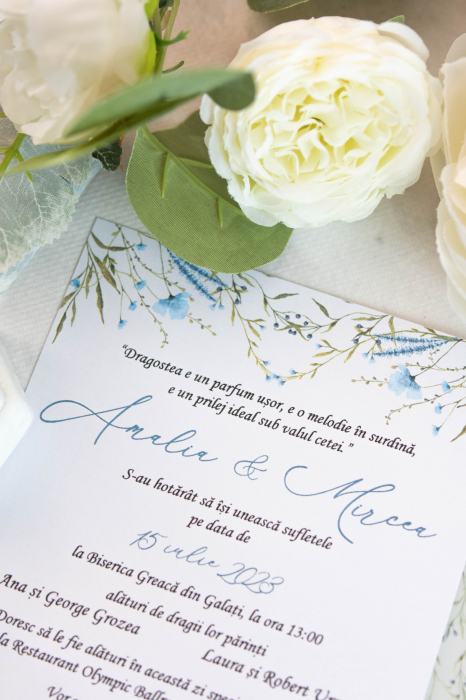 “Dragostea e un parfum ușor, e o melodie în surdină,
e un prilej ideal sub valul cetei.”
Amalia & Mircea
S-au hotărât să își unească sufletele
pe data de
15 iulie 2023
la Biserica Greacă din Galați, la ora 13:00
alături de dragii lor părinți
Ana și George Grozea
Laura și Robert
Doresc să le fie alături în această zi
la Restaurant Olympic